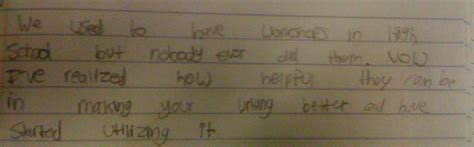 We used to have workshops in High
School but nobody ever did them. Now
I've realized how helpful they can be
in making your writing better and have
started utilizing it